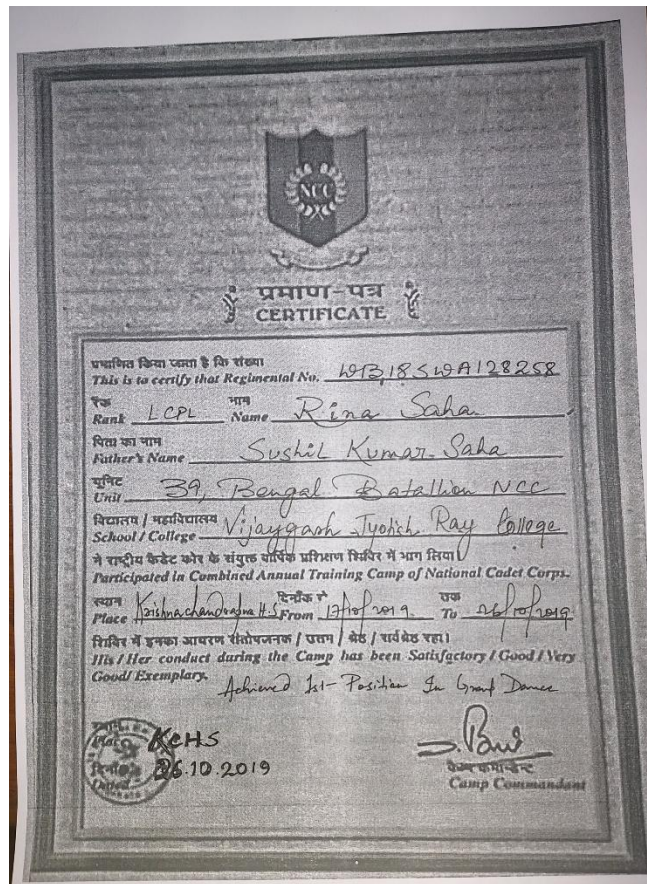 NCC
प्रमाण-पत्र
CERTIFICATE
प्रमाणित किया जाता है कि संख्या
This is to certify that Regimental No. WB18SWA128258
रैंक नाम
Rank LCPL Name Rina Saha
पिता का नाम
Father's Name Sushil Kumar Saha
यूनिट
Unit 39, Bengal Batallion NCC
विद्यालय / महाविद्यालय
School / College Vijaygarh Jyotish Ray College
ने राष्ट्रीय कैडेट कोर के संयुक्त वार्षिक प्रशिक्षण शिविर में भाग लिया।
Participated in Combined Annual Training Camp of National Cadet Corps.
स्थान दिनाँक से तक
Place Krishnachandrapur H.S From 17/10/2019. To 26/10/2019
शिविर में इनका आचरण संतोषजनक / उत्तम / श्रेष्ठ / सर्वश्रेष्ठ रहा।
His / Her conduct during the Camp has been Satisfactory / Good / Very
Good / Exemplary.
Achieved 1st - Position In Group Dance
स्थान
KCHS
दिनाँक
Dated 26.10.2019
कैम्प कमान्डेन्ट
Camp Commandant